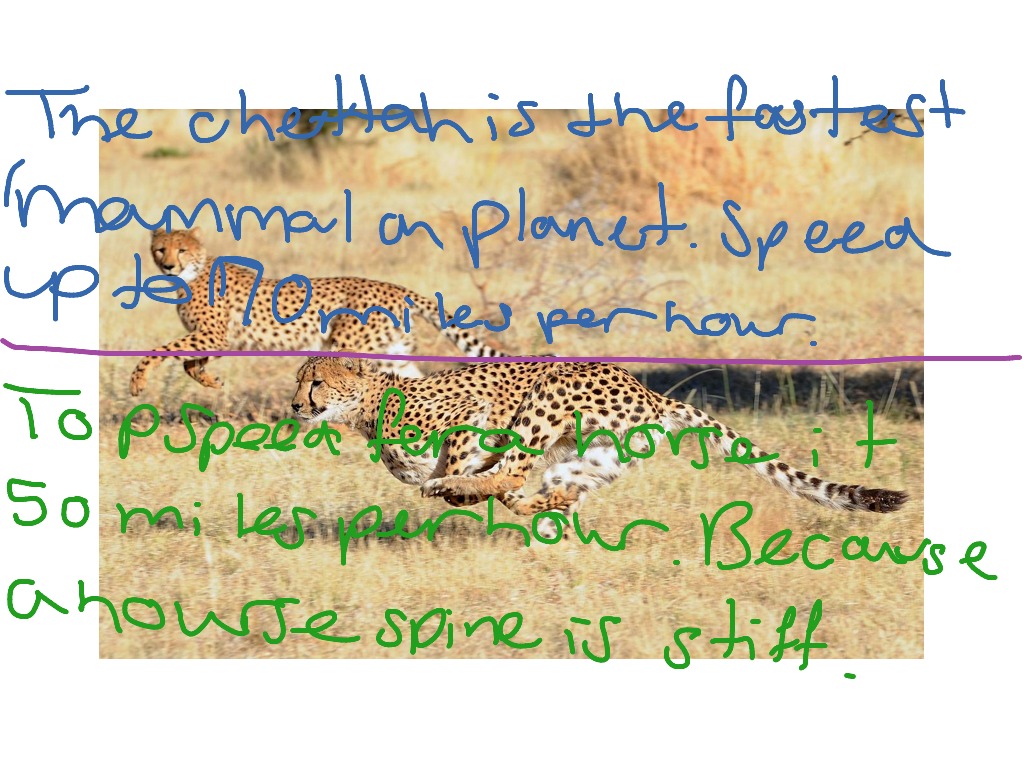 The chettah is the fastest
mammal on planet. Speed
up to 70 miles per hour.
Top Speed fer a horse it
50 miles per hour. Because
a hourse spine is stiff.